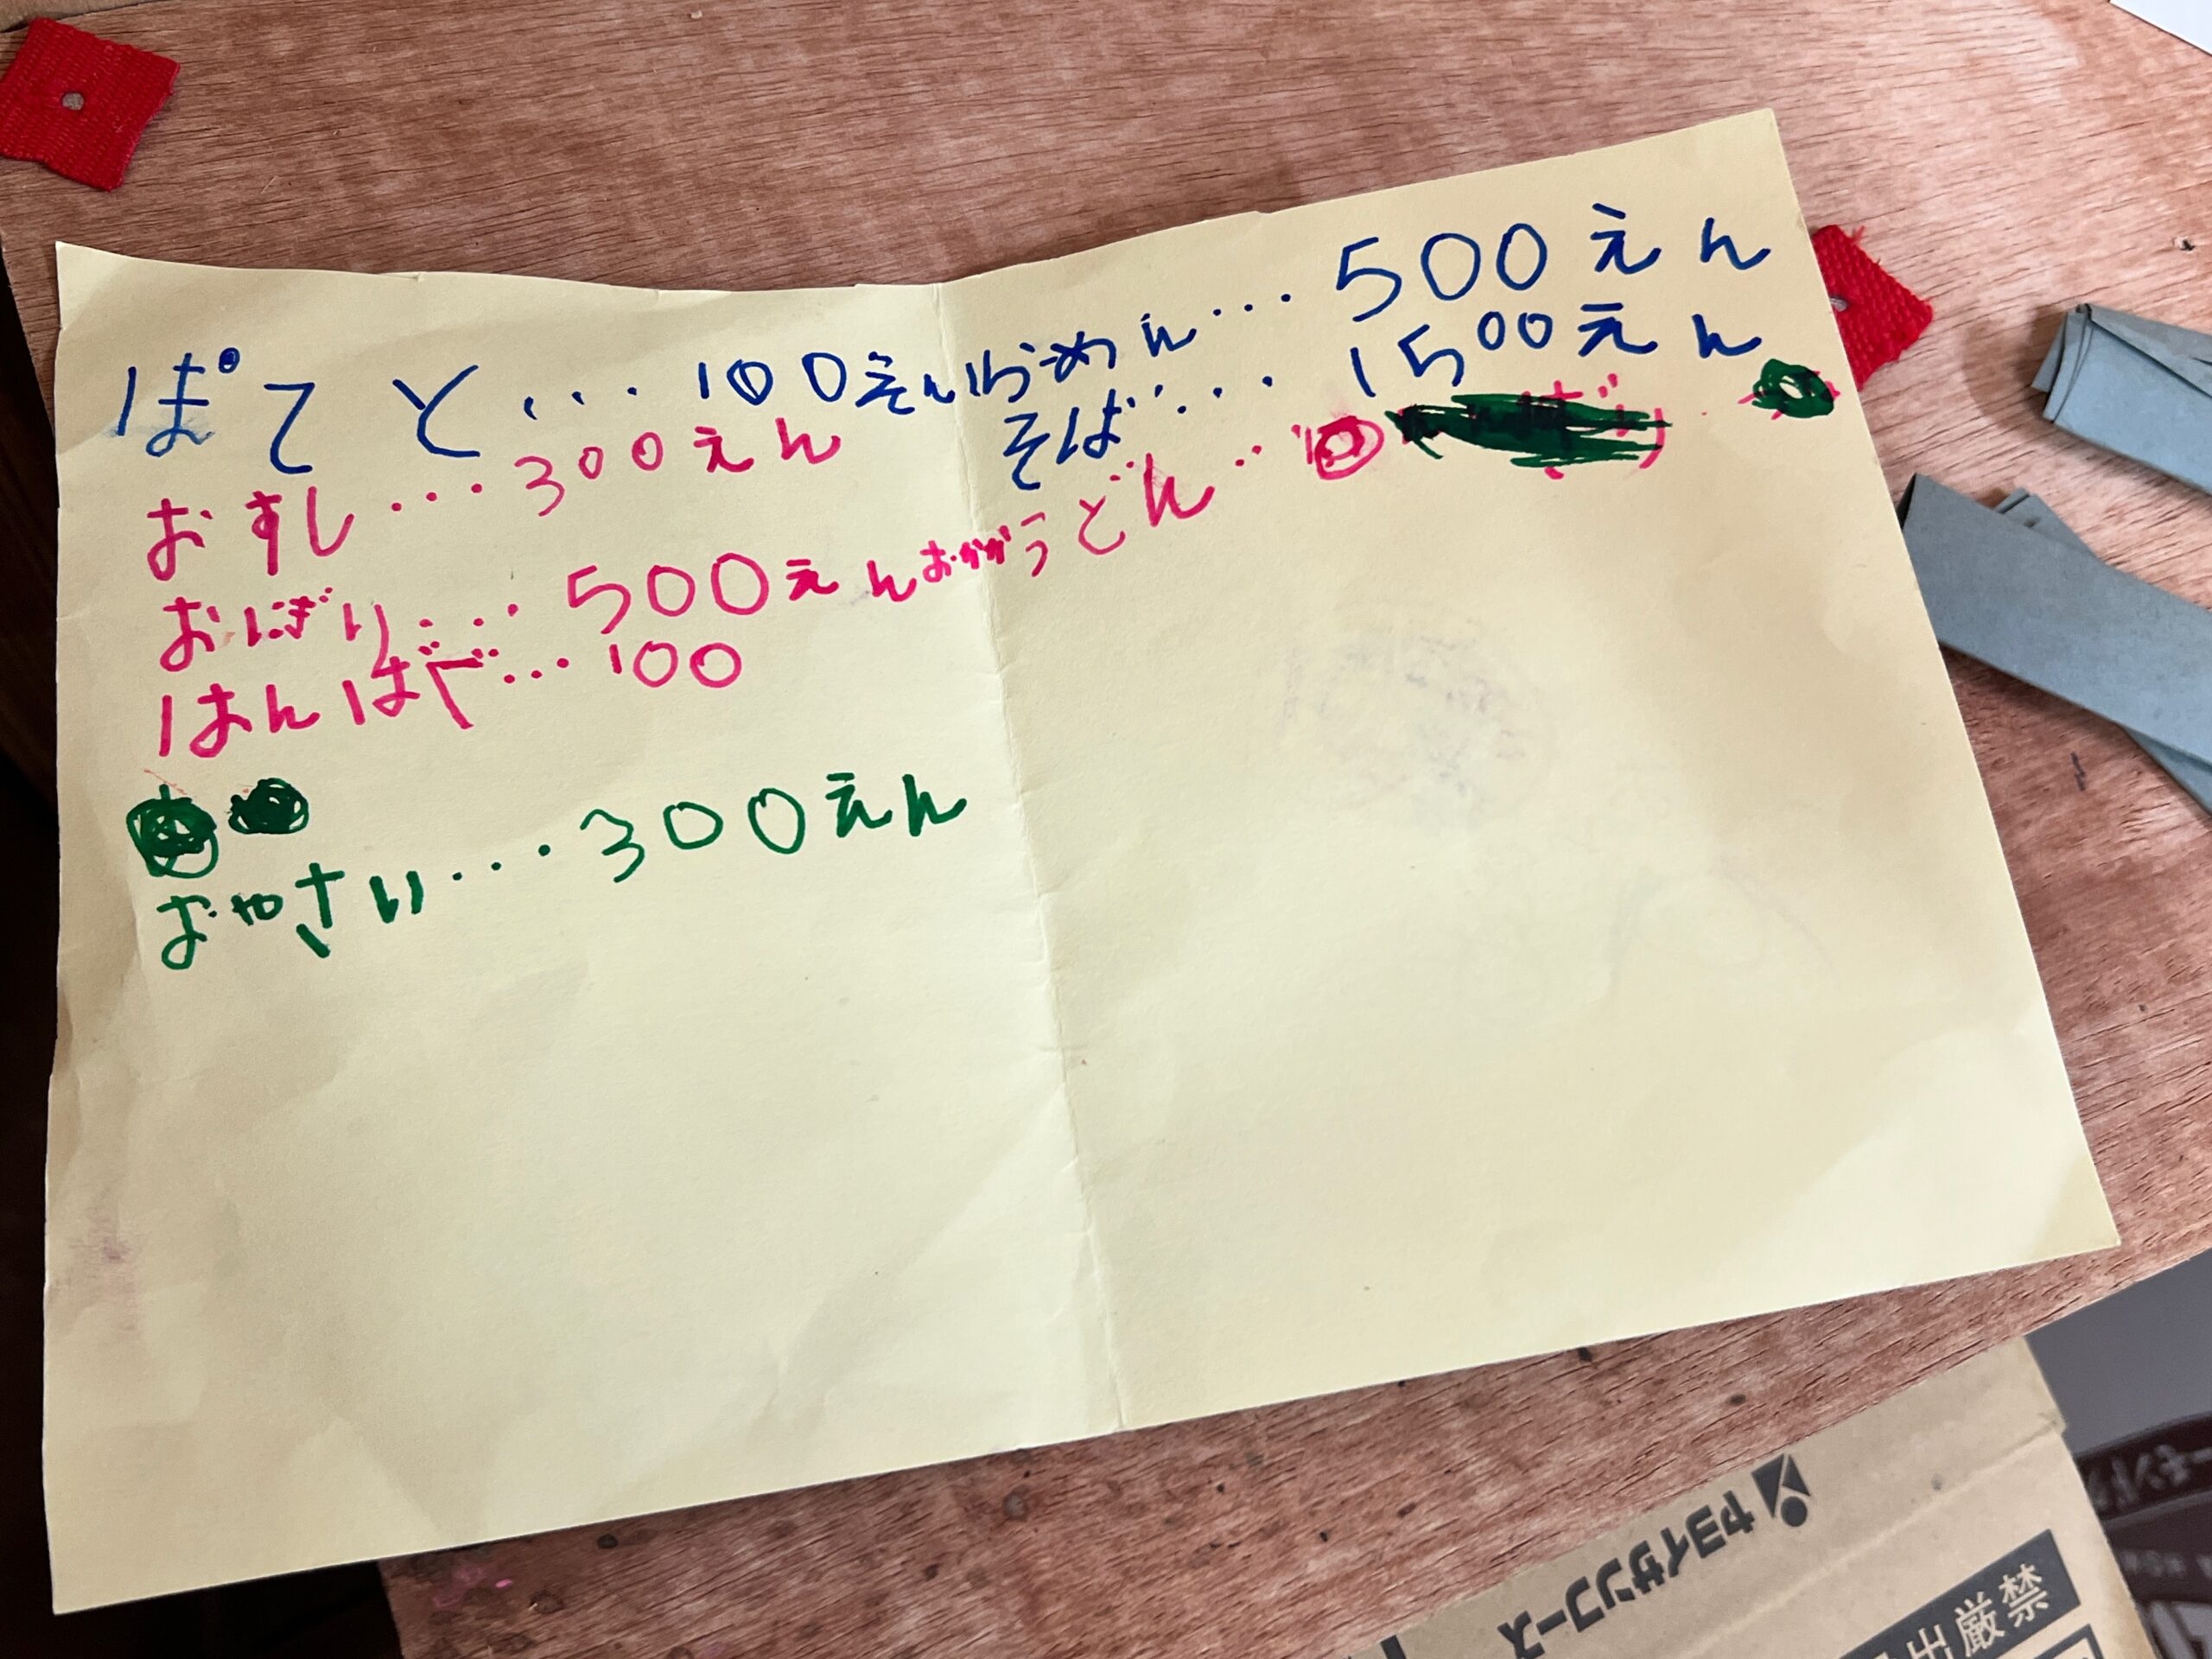 ぽてと・・・100えん
おすし・・・300えん
おにぎり・・・500えん
はんばぐ・・・100
おやさい・・・300えん
らーめん・・・500えん
そば・・・1500えん
うどん・・・
ヤヨイサンフーズ
出厳禁